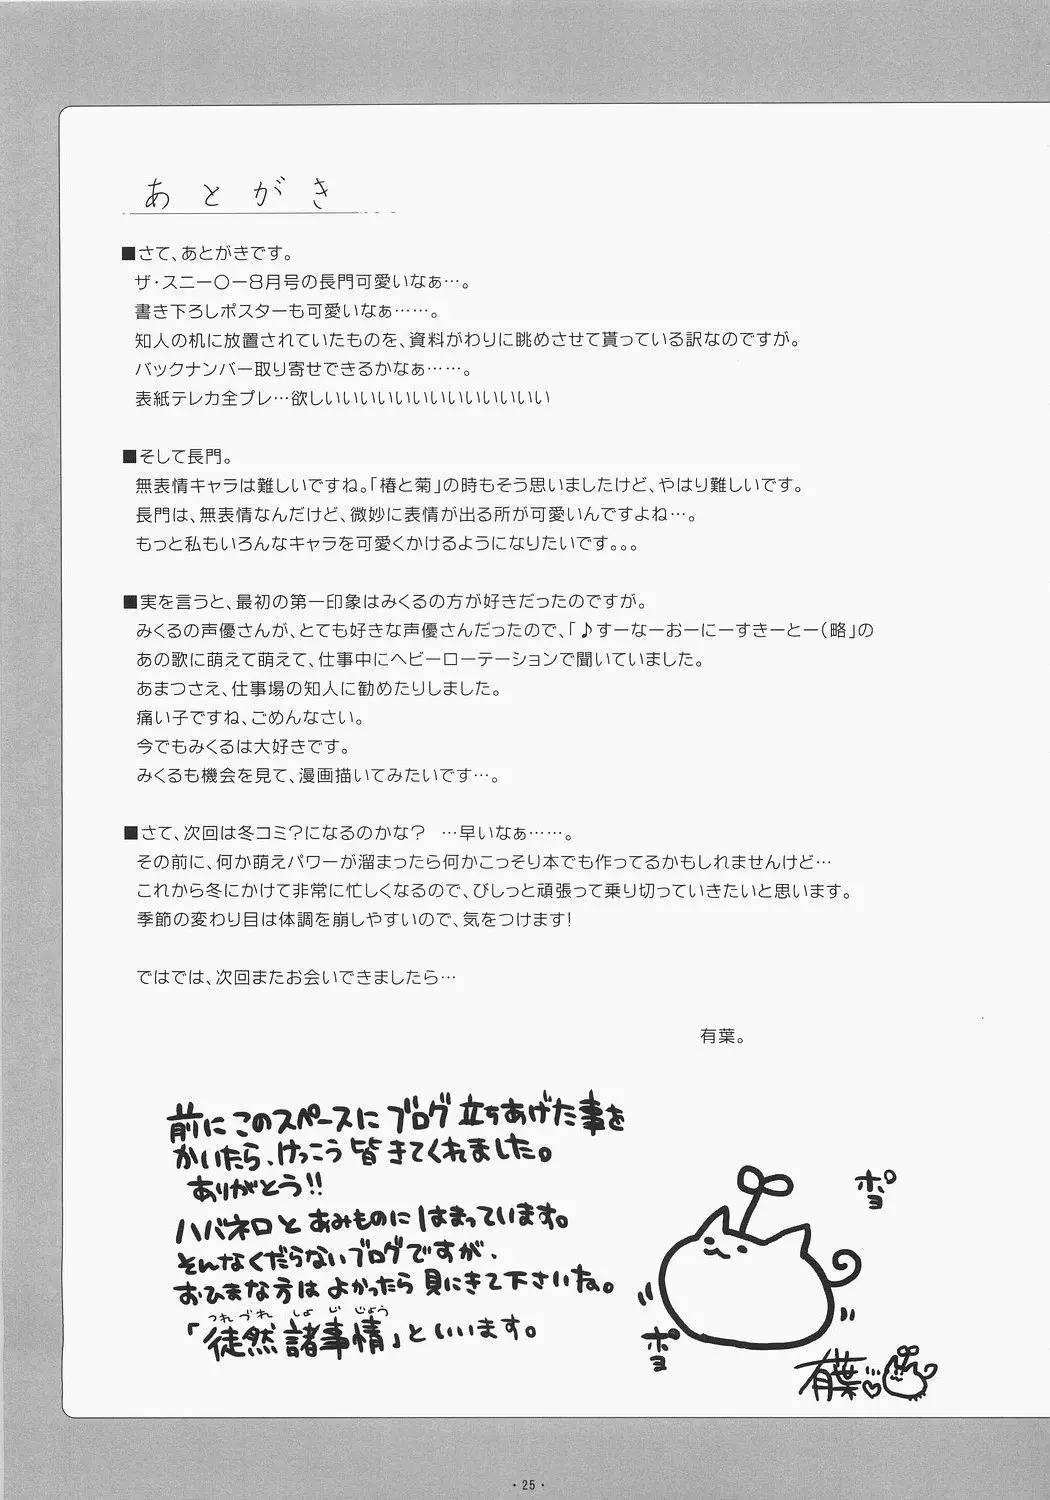 あとがき
■さて、あとがきです。
ザ・スニー○ー8月号の長門可愛いなぁ…。
書き下ろしポスターも可愛いなぁ……。
知人の机に放置されていたものを、資料がわりに眺めさせて貰っている訳なのですが。
バックナンバー取り寄せできるかなぁ……。
表紙テレカ全プレ…欲しいいいいいいいいいいいい
■そして長門。
無表情キャラは難しいですね。「椿と菊」の時もそう思いましたけど、やはり難しいです。
長門は、無表情なんだけど、微妙に表情が出る所が可愛いんですよね…。
もっと私もいろんなキャラを可愛くかけるようになりたいです。。。
■実を言うと、最初の第一印象はみくるの方が好きだったのですが。
みくるの声優さんが、とても好きな声優さんだったので、「♪すーなーおーにーすきーとー（略」の
あの歌に萌えて萌えて、仕事中にヘビーローテーションで聞いていました。
あまつさえ、仕事場の知人に勧めたりしました。
痛い子ですね、ごめんなさい。
今でもみくるは大好きです。
みくるも機会を見て、漫画描いてみたいです…。
■さて、次回は冬コミ？になるのかな？　…早いなぁ……。
その前に、何か萌えパワーが溜まったら何かこっそり本でも作ってるかもしれませんけど…
これから冬にかけて非常に忙しくなるので、びしっと頑張って乗り切っていきたいと思います。
季節の変わり目は体調を崩しやすいので、気をつけます！
ではでは、次回またお会いできましたら…
有葉。
前にこのスペースにブログ立ちあげた事を
かいたら、けっこう皆きてくれました。
ありがとう!!
ハバネロとあみものにはまっています。
そんなくだらないブログですが、
おひまな方はよかったら見にきて下さいね。
つれづれ しょじじょう
「徒然諸事情」といいます。
ポヨ
ポヨ
有葉
・25・